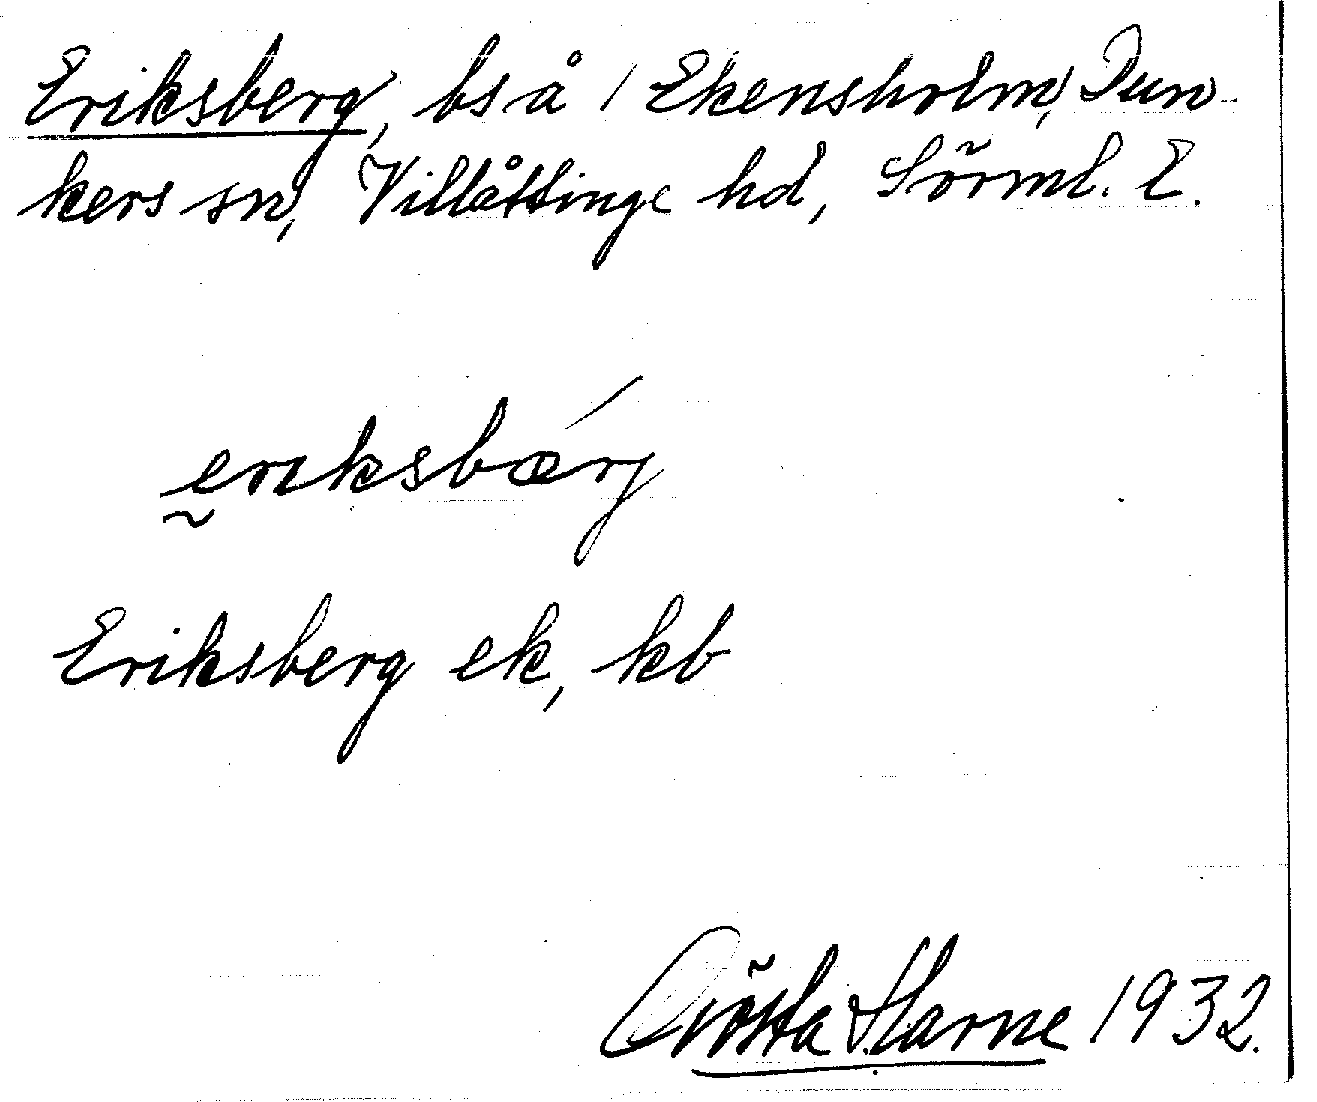 Eriksberg, bs å / Ekensholm, Dun-
kers sn, Villåttinge hd, Sörml. E.
eriksbærj
Eriksberg ek, kb
Gösta Harne 1932.